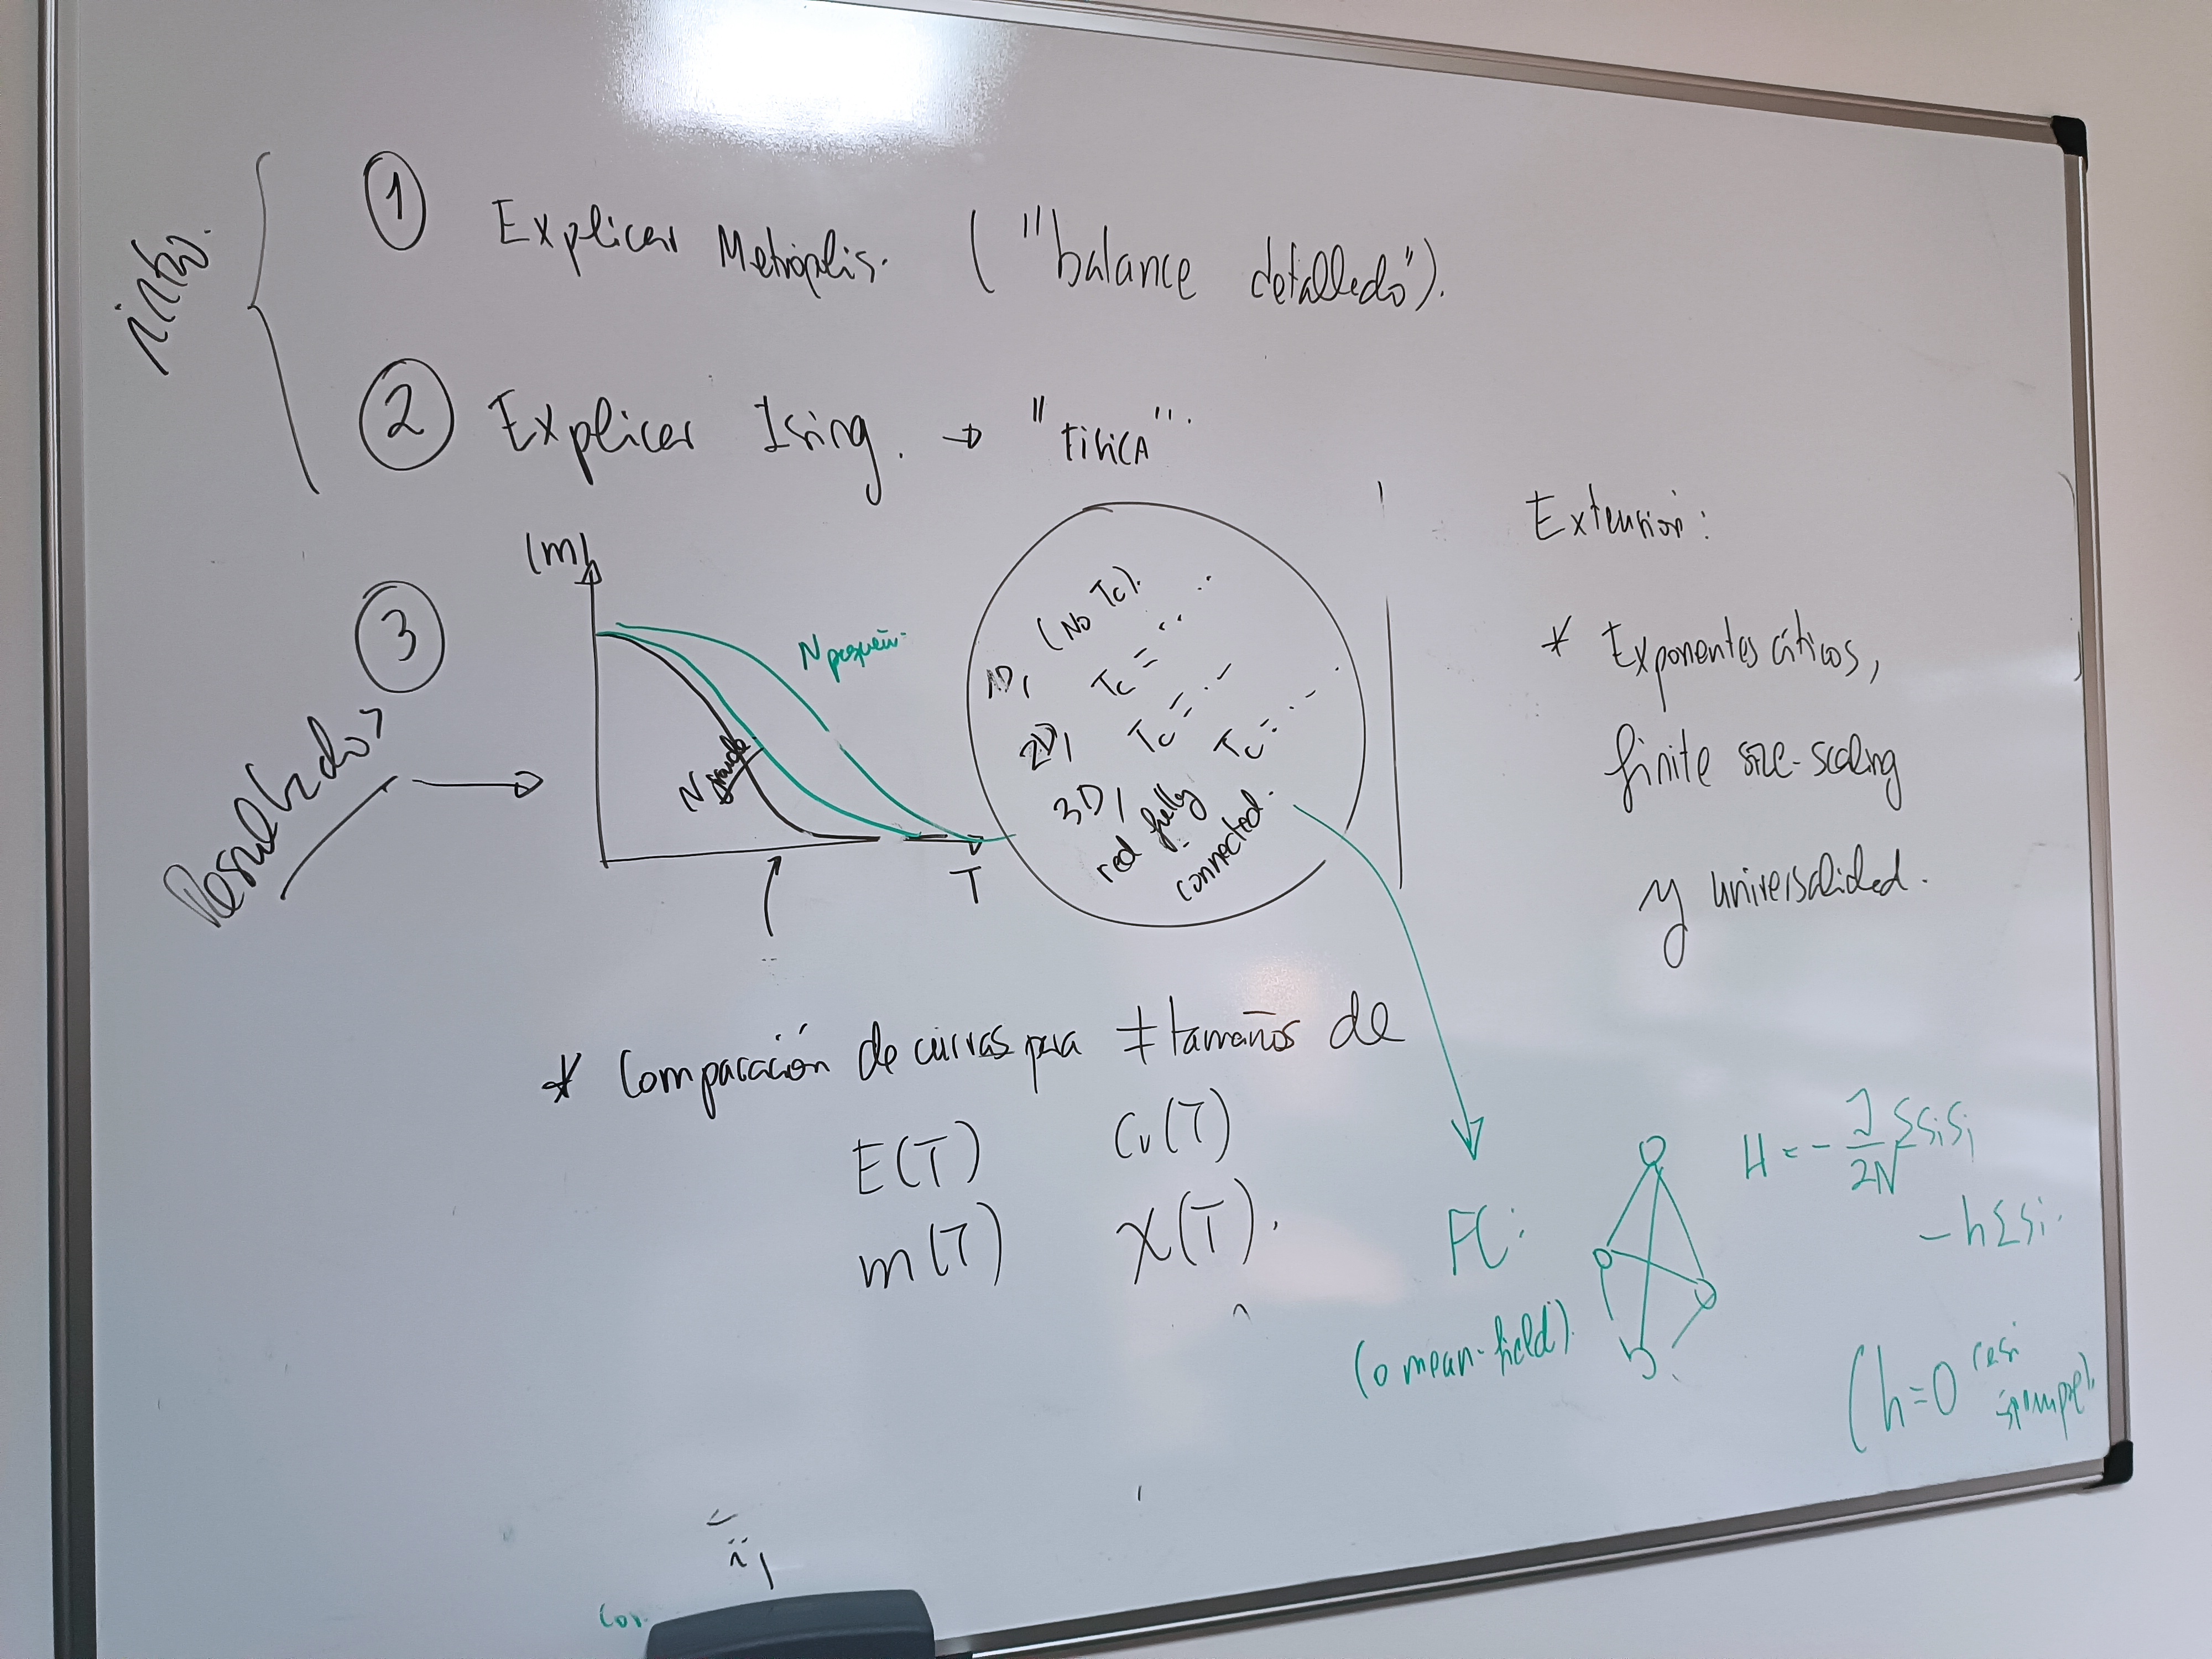 intro.
① Explicar Metropolis. ("balance detallado").
② Explicar Ising. → "FísicA".
③
Resultados →
|m|
N pequeñ.
N grande
T
(No Tc).
1D, Tc = ...
2D, Tc = ...
3D, Tc = ...
red fully
connected.
Extension:
* Exponentes críticos,
finite size-scaling
y universalidad.
* Comparación de curvas para ≠ tamaños de
E(T) Cv(T)
m(T) χ(T).
FC:
(o mean-field).
H = - J/2N Σ Si Sj
- h Σ Si.
(h=0 casi
siempre).
Cor